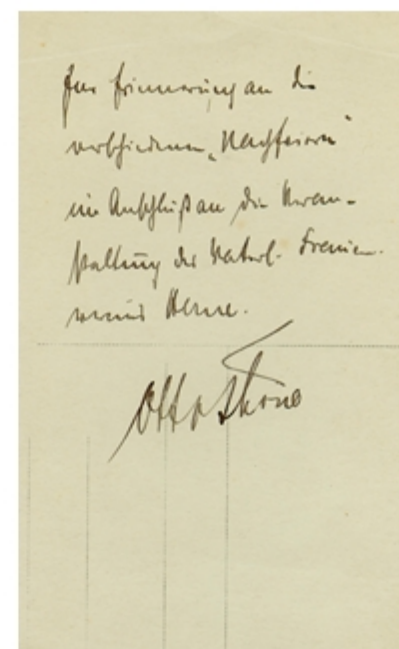 Zur Erinnerung an die
verschiedenen „Nachfeiern"
im Anschluß an die Veran-
staltung des Vaterl. Frauen-
vereins Herne.
Otto